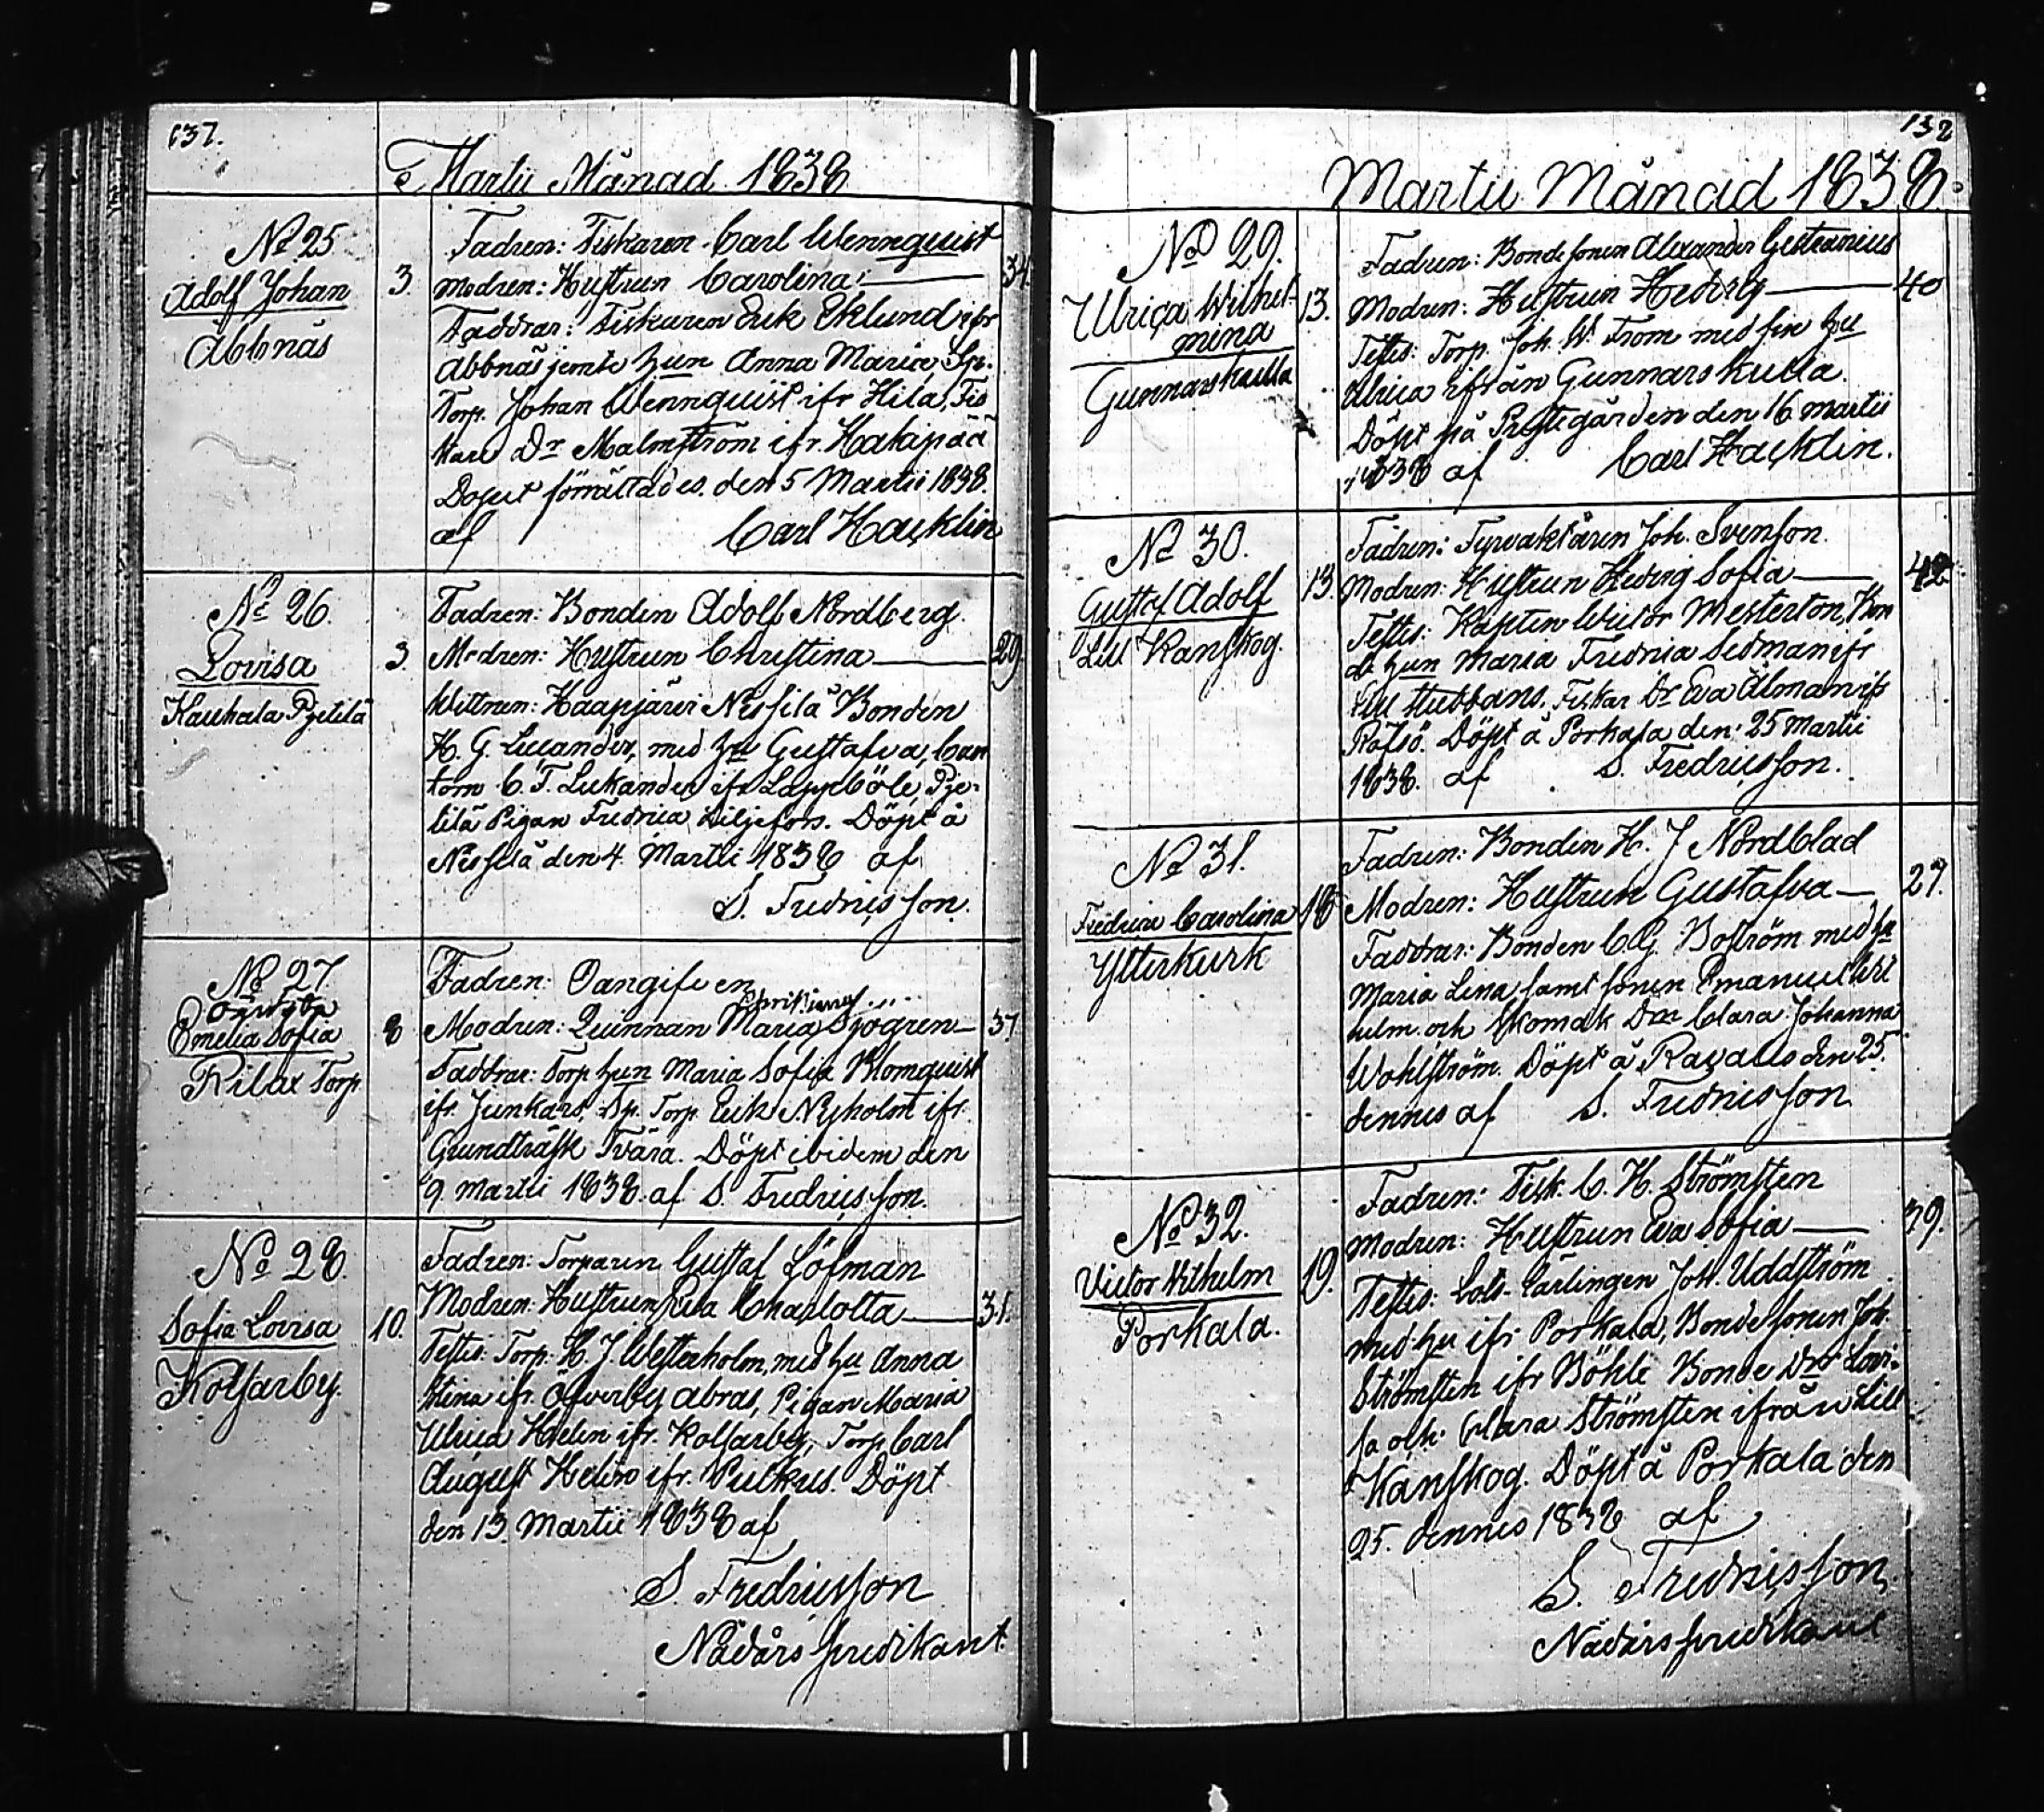 637.
Martii Månad 1838
No 25
Adolf Johan
Abbnäs
3.
Fadren: Fiskaren Carl Wennquist
modren: Hustrun Carolina
34.
Faddrar: Fiskaren Erik Eklund ifr
Abbnäs jemte hun Anna Maria, Sp.
Torp. Johan Wennquist ifr Hila, Fis
kare Dr Malmström ifr. Hakapää
Doput förrättades den 5 Martii 1838.
af Carl Hacklin
No 26.
Lovisa
Kauhala Pyetilä
3.
Fadren: Bonden Adolf Nordberg
Modren: Hustrun Christina
29
Wittnen: Haapjärvi Nissilä Bonden
H. G. Lucander, med hu Gustafva, Can
torn C. T. Lukander ifr Lappböle, Pye-
tilä Pigan Fredrica Liljefors. Döpt å
Nissilä den 4. Martii 1838 af
S. Fredricsson.
No 27
oägta
Emelia Sofia
Kilax Torp
8
Fadren: Oangifven
Modren: Quinnan Maria Sjögren
37.
Faddrar: Torp hun Maria Sofia Blomquist
ifr. Junkars, Sp. Torp Erik Nyholm ifr.
Grundträsk Tvära. Döpt ibidem den
9 martii 1838. af S. Fredricsson.
No 28.
Sofia Lovisa
Kolsarby.
10.
Fadren: Torparen Gustaf Löfman
Modren: Hustrun Eva Charlotta
31.
Testis: Torp. H. J. Westerholm, med hu Anna
Stina ifr. Öfverby Abras, Pigan Maria
Ulrica Helin ifr. Kolsarby, Torp Carl
August Helin ifr. Pulkus. Döpt
den 13 Martii 1838 af
S. Fredricsson
Nådårspredikant
132
Martii Månad 1838.
No 29.
Ulrica Wilhel-
mina
Gunnarskulla
13.
Fadren: Bondesonen Alexander Gestranius
Modren: Hustrun Hedvig
40
Testis: Torp. Joh. W. From med sin hu
Ulrica ifrån Gunnarskulla.
Döpt på Prestegården den 16 martii
1838 af Carl Hacklin.
No 30.
Gustaf Adolf
Lill Kanskog.
13.
Fadren: Fyrvaktaren Joh. Svenson.
Modren: Hustrun Hedvig Sofia
42
Testis: Kapten Victor Westerton, Bon
de hun Maria Fredrica Sedman ifr
Lill Stubbans. Fiskar Dr Eva Ålman ifr
Räfsö. Döpt å Porkala den 25 Martii
1838. af S. Fredricsson.
No 31.
Fredrica Carolina
Ytterkurk
16
Fadren: Bonden H. J Nordblad
Modren: Hustrun Gustafva
27.
Faddrar: Bonden C. G. Boström med hu
Maria Lena samt sonen Emanuel Wil
helm och Skomak Dr Clara Johanna
Wohlström. Döpt å Ravals den 25.
dennes af S. Fredricsson
No 32.
Victor Wilhelm
Porkala.
19.
Fadren: Fisk. C. H. Strömsten
Modren: Hustrun Eva Sofia
39.
Testis: Lots-Lärlingen Joh. Uddström
med hu ifr Porkala, Bondesonen Joh.
Strömsten ifr Böhle Bonde Drr Lovi-
sa och Clara Strömsten ifrån Lill
Kanskog. Döpt å Porkala den
25. dennes 1838 af
S. Fredricsson
Nådårspredikant